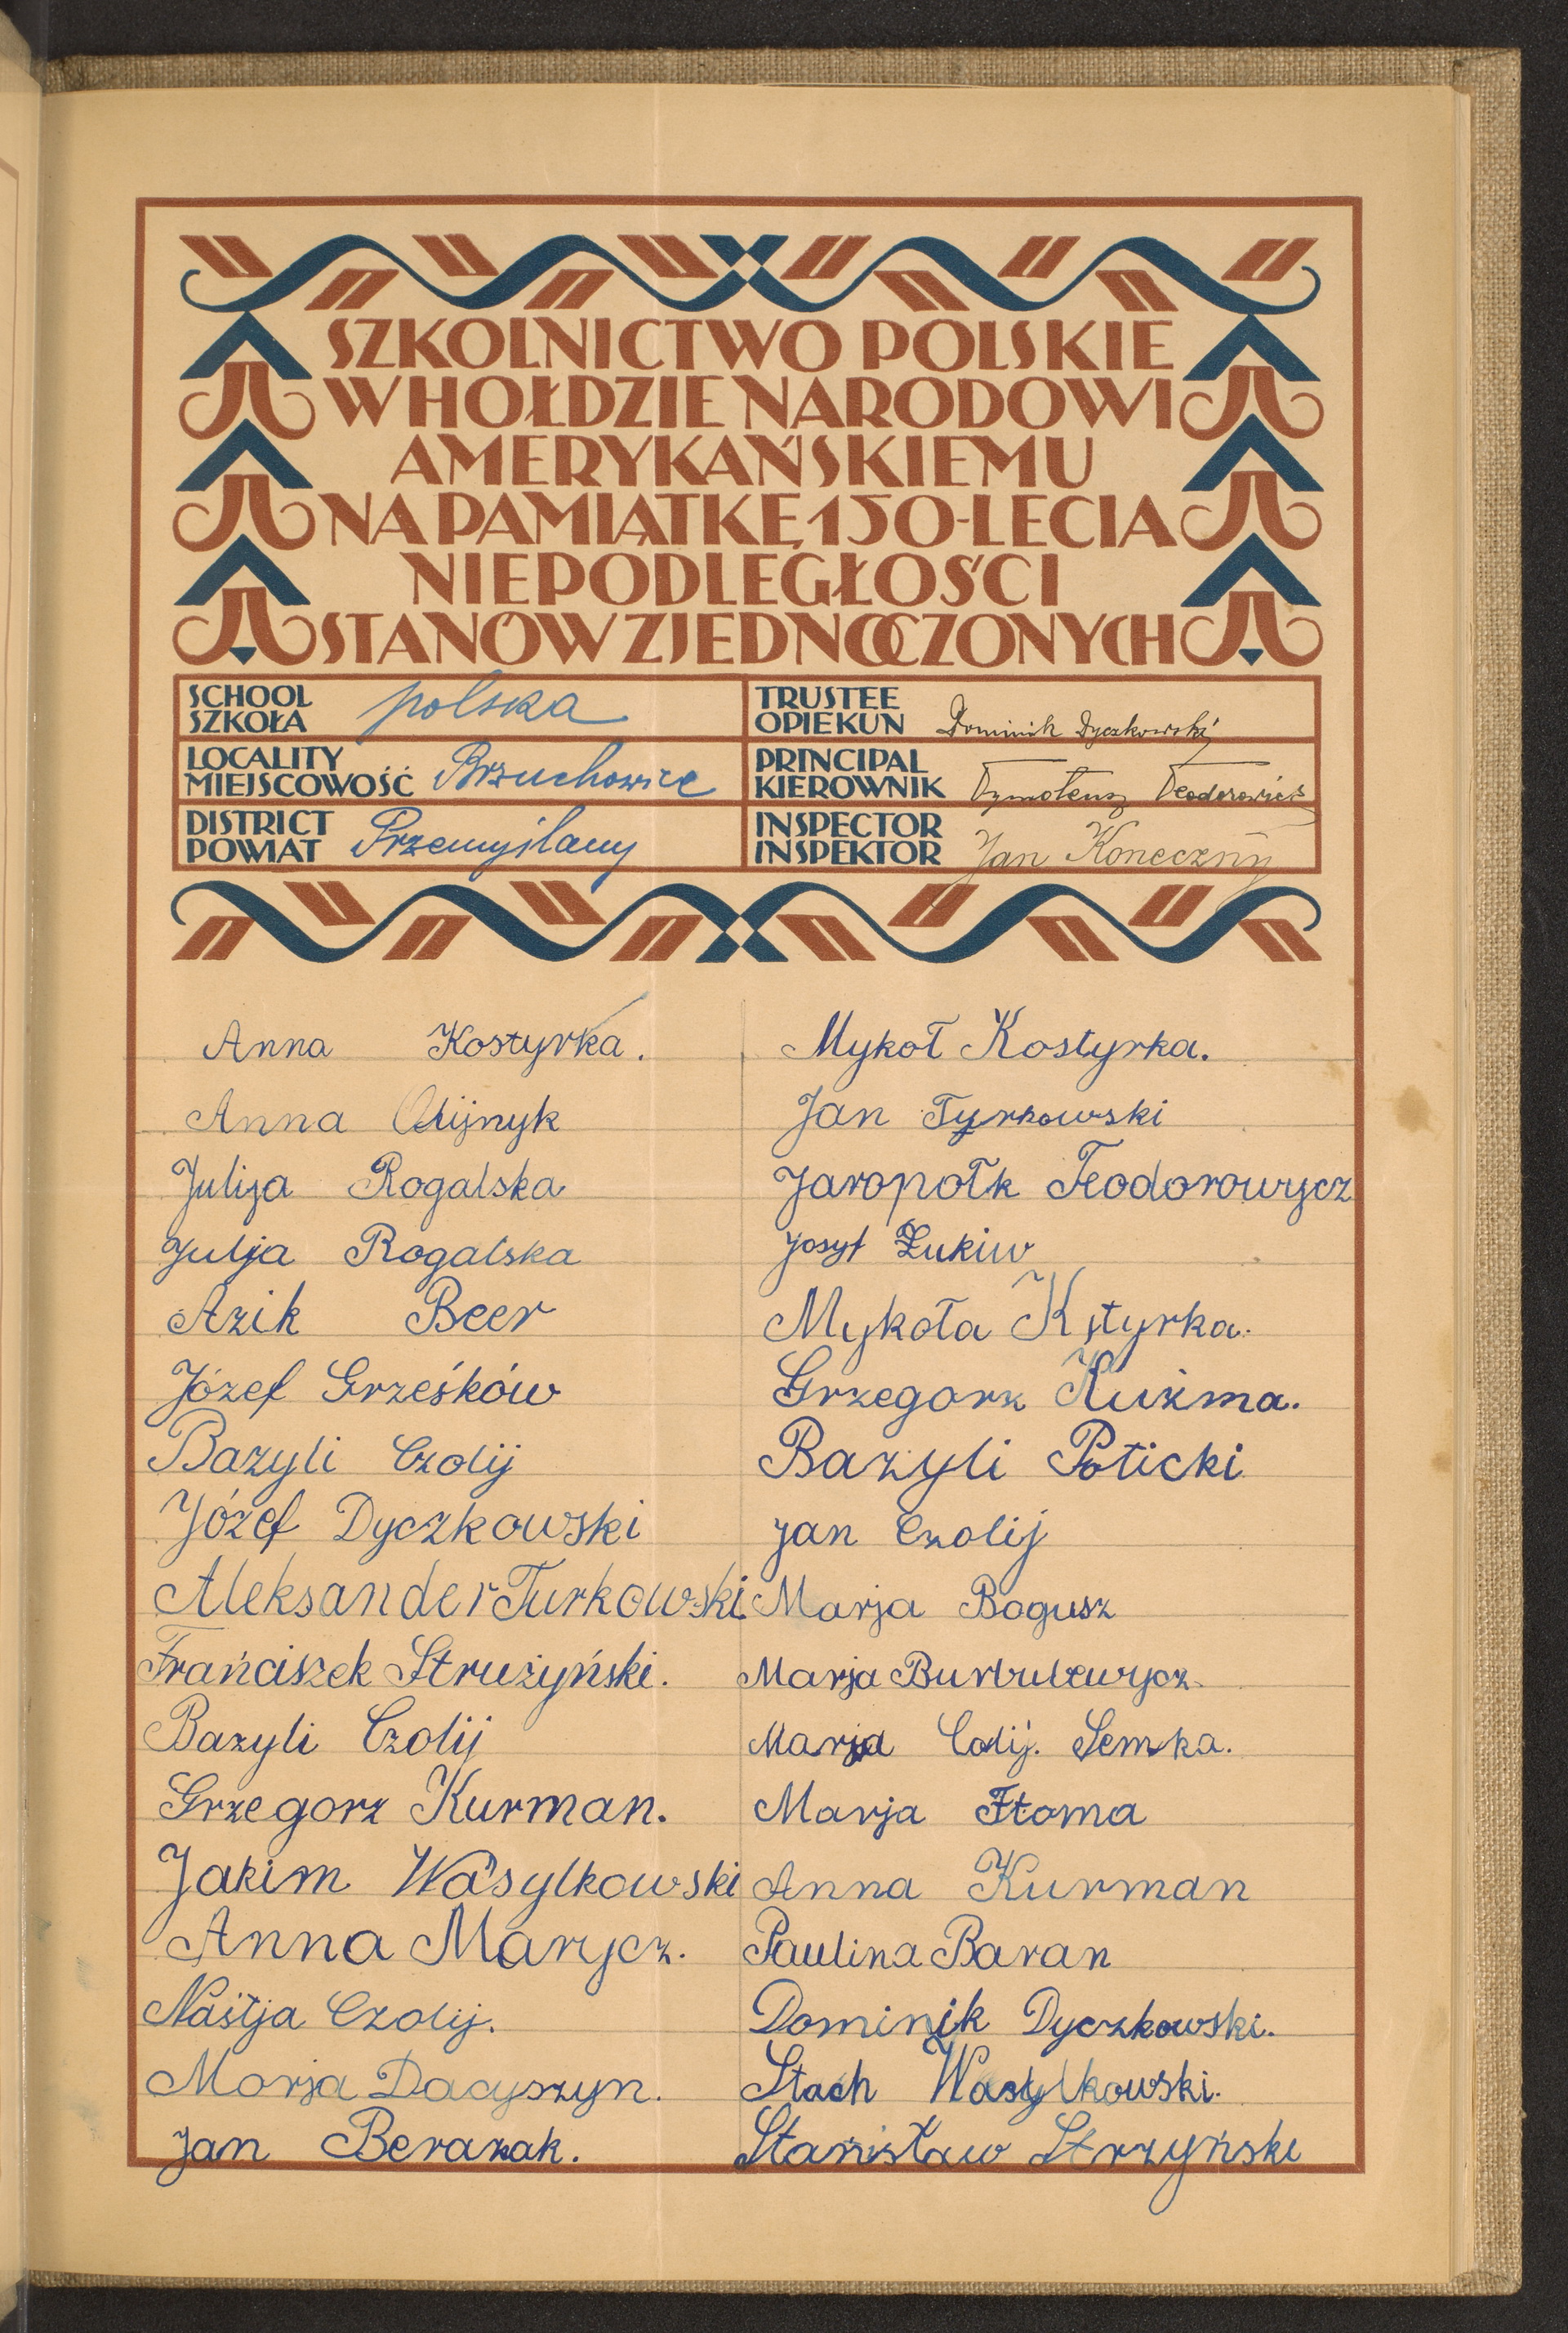 SZKOLNICTWO POLSKIE
W HOŁDZIE NARODOWI
AMERYKAŃSKIEMU
NA PAMIĄTKĘ 150-LECIA
NIEPODLEGŁOŚCI
STANÓW ZJEDNOCZONYCH
SCHOOL
SZKOŁA polska
LOCALITY
MIEJSCOWOŚĆ Brzuchowice
DISTRICT
POWIAT Przemyślany
TRUSTEE
OPIEKUN Dominik Dyczkowski
PRINCIPAL
KIEROWNIK Tymoteusz Teodorowicz
INSPECTOR
INSPEKTOR Jan Koneczny
Anna Kostyrka.
Anna Olijnyk
Julija Rogalska
Julja Rogalska
Azik Beer
Józef Grześków
Bazyli Czolij
Józef Dyczkowski
Aleksander Turkowski
Frańciszek Strużyński.
Bazyli Czolij
Grzegorz Kurman.
Jakim Wasylkowski
Anna Marycz.
Naśtja Czolij.
Marja Dacyszyn.
Jan Berazak.
Mykoł Kostyrka.
Jan Tyrkowski
Jaropołk Feodorowycz
Josyf Łukiw
Mykoła Kstyrka.
Grzegorz Kuźma.
Bazyli Poticki
Jan Czolij
Marja Bogusz
Marja Burbulewycz.
Marja Colij. Semka.
Marja Ftoma
Anna Kurman
Paulina Baran
Dominik Dyczkowski.
Stach Wasylkowski.
Stanisław Strzyński